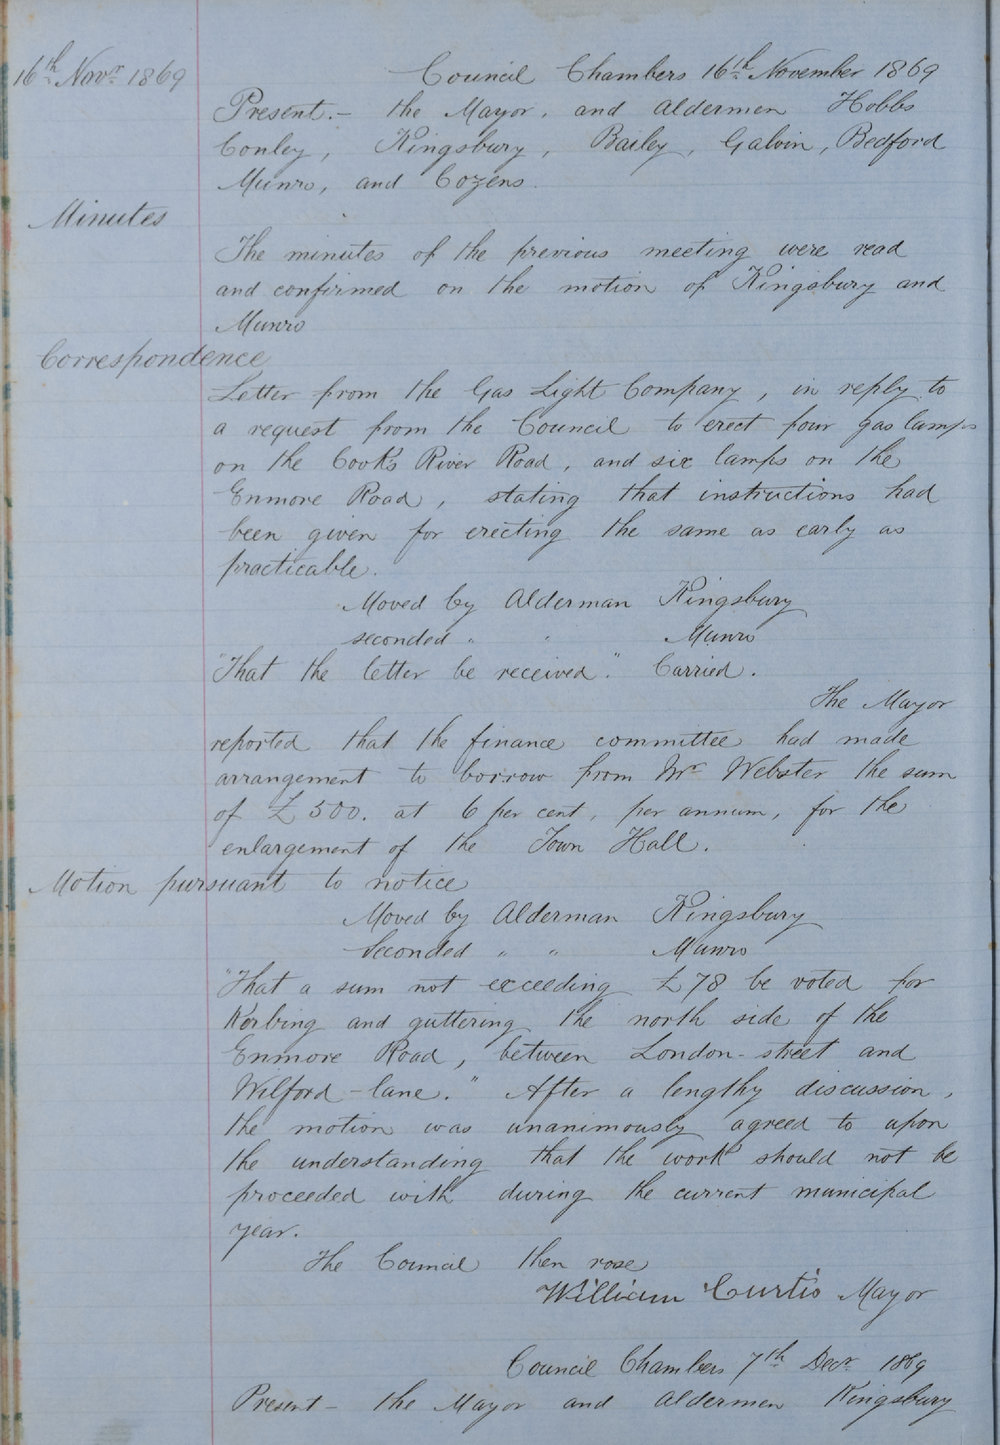 16th Novr 1869
Council Chambers 16th November 1869
Present.- the Mayor, and Aldermen Hobbs
Conley, Kingsbury, Bailey, Galvin, Bedford
Munro, and Cozens.
Minutes
The minutes of the previous meeting were read
and confirmed on the motion of Kingsbury and
Munro
Correspondence
Letter from the Gas Light Company, in reply to
a request from the Council to erect four gas lamps
on the Cook's River Road, and six lamps on the
Enmore Road, stating that instructions had
been given for erecting the same as early as
practicable.
Moved by Alderman Kingsbury
seconded " " Munro
"That the letter be received." Carried.
The Mayor
reported that the finance committee had made
arrangement to borrow from Mr Webster the sum
of £500. at 6 per cent, per annum, for the
enlargement of the Town Hall.
Motion pursuant to notice
Moved by Alderman Kingsbury
Seconded " " Munro
"That a sum not exceeding £78 be voted for
Kerbing and guttering the north side of the
Enmore Road, between London-street and
Wilford-lane." After a lengthy discussion,
the motion was unanimously agreed to upon
the understanding that the work should not be
proceeded with during the current municipal
year.
The Council then rose
William Curtis Mayor
Council Chambers 7th Decr 1869
Present - the Mayor and Aldermen Kingsbury